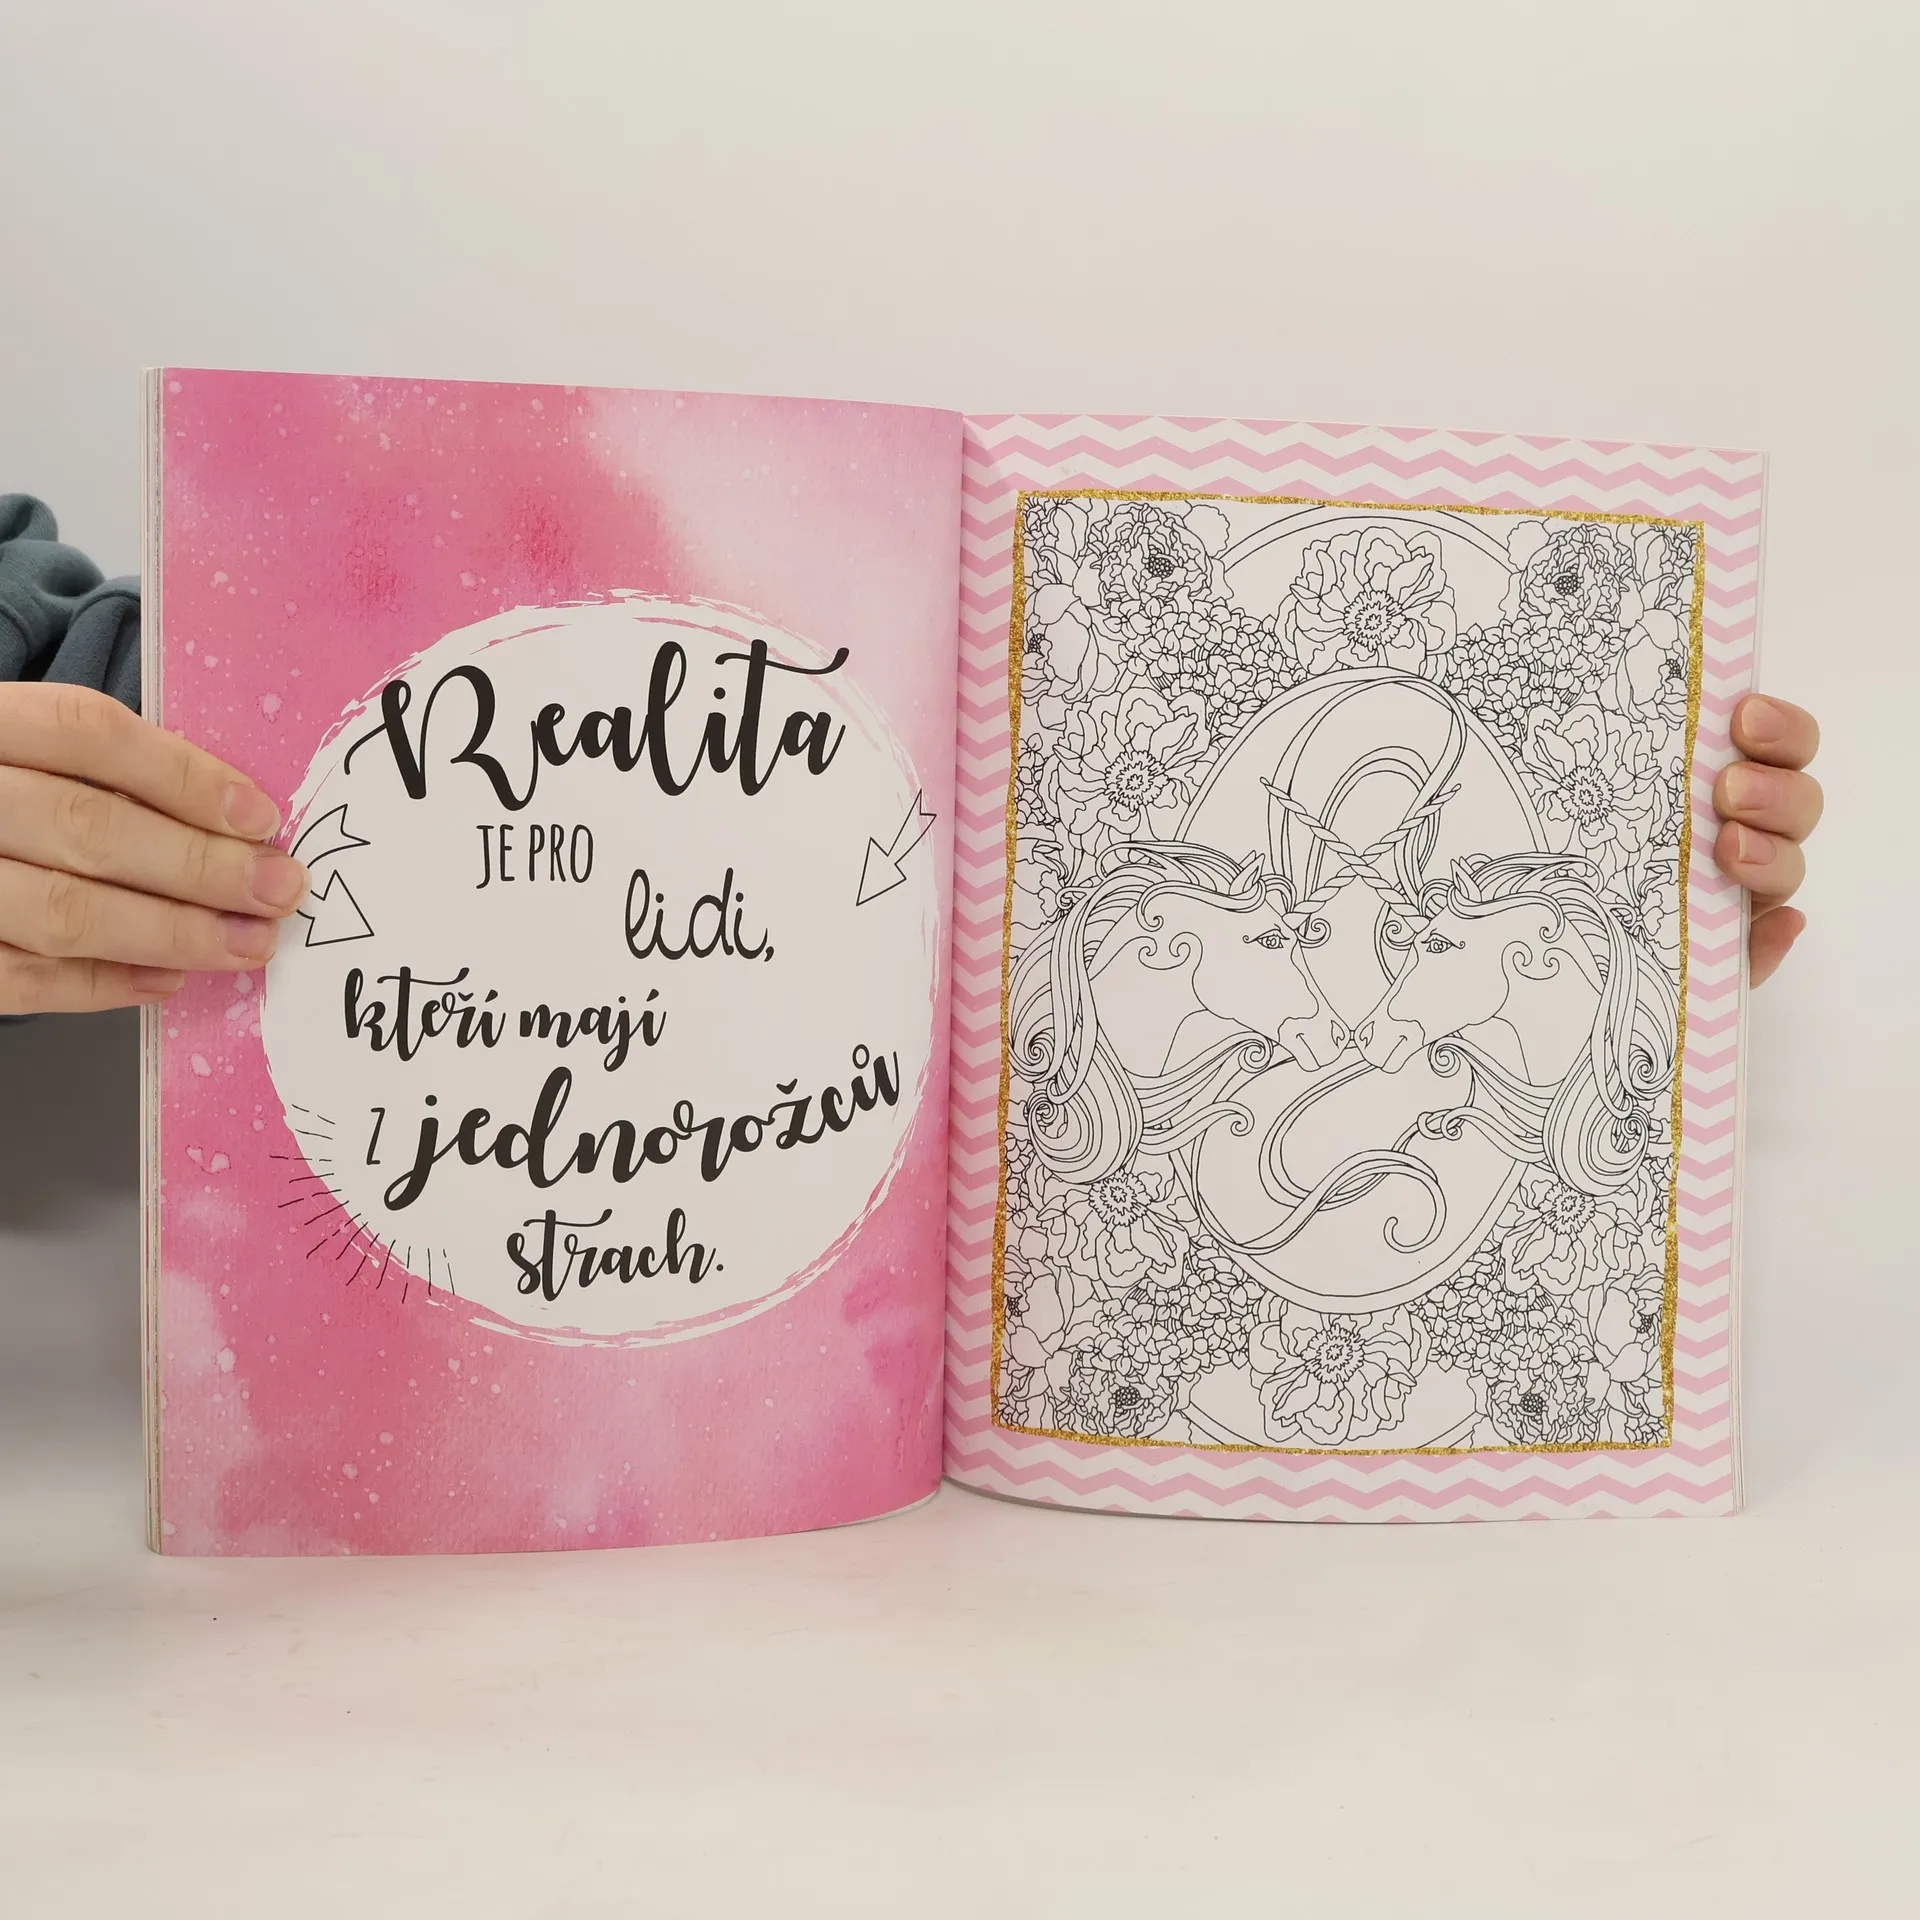 Realita
JE PRO
lidi,
kteří mají
z jednorožců
strach.